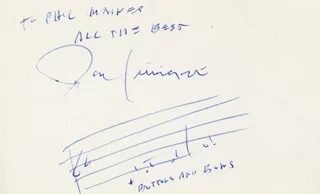 TO PHIL
ALL THE BEST
Jay Livingston
BUTTONS AND BOWS